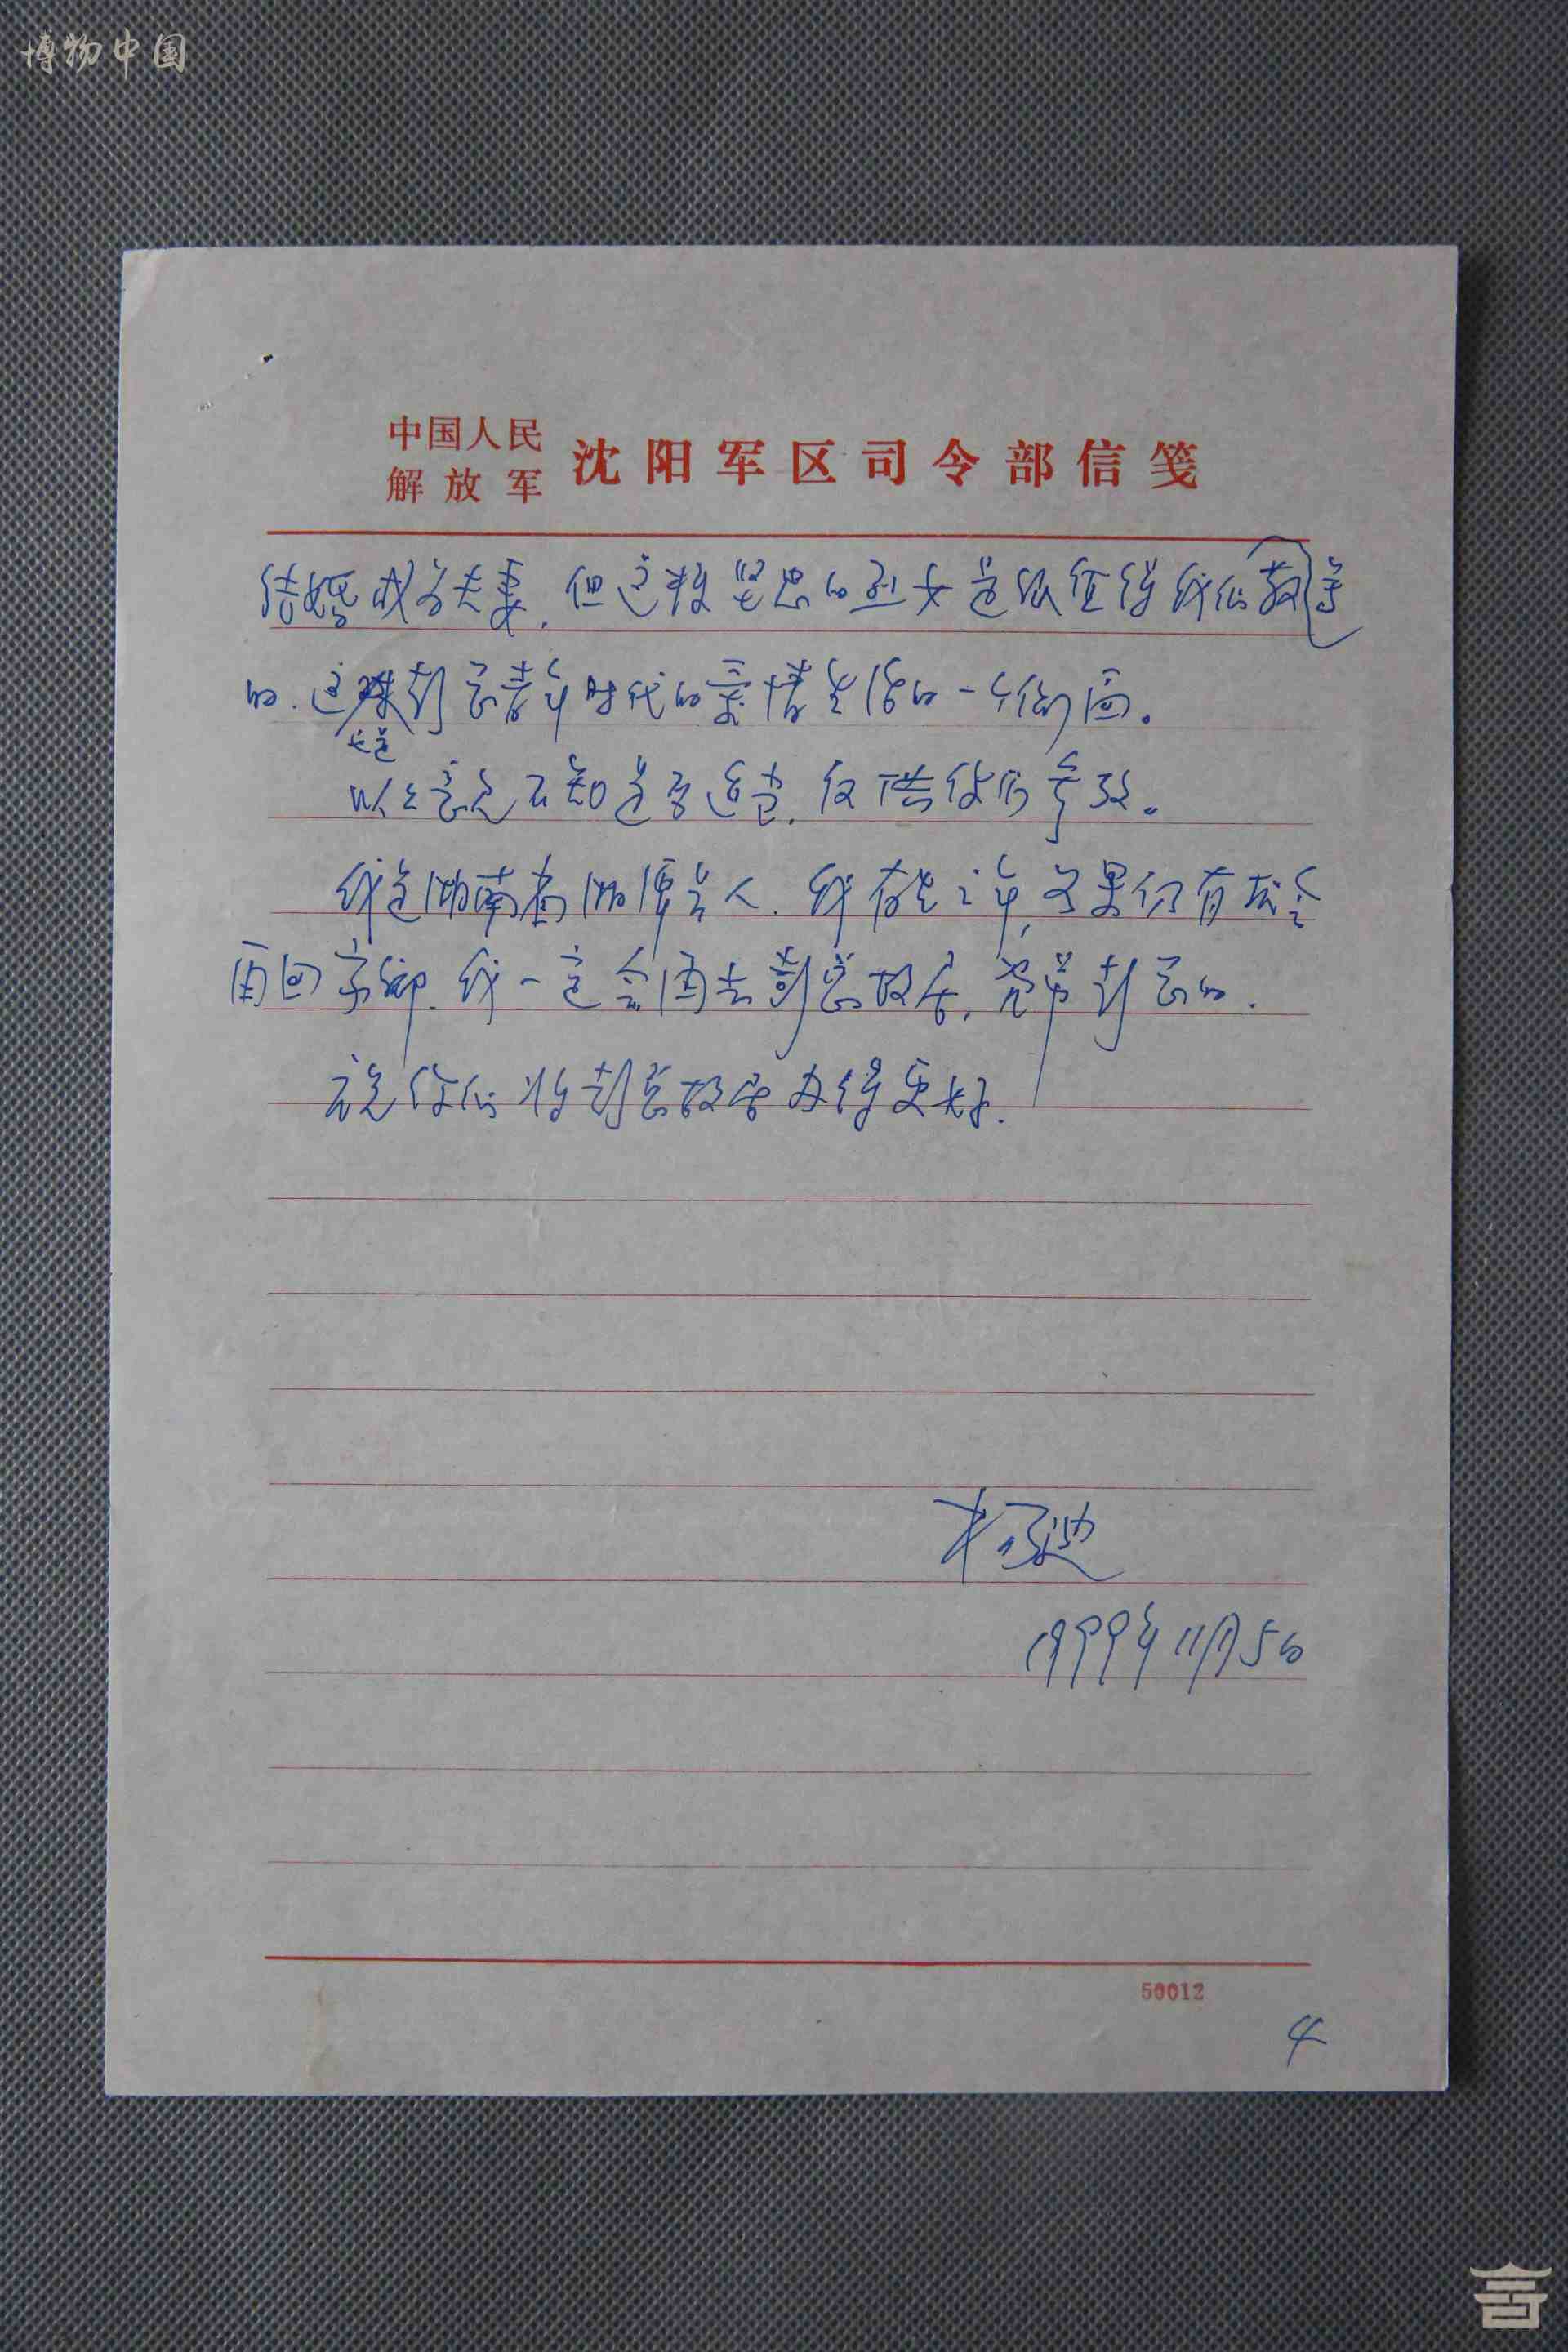 博物中国
中国人民
解放军
沈阳军区司令部信笺
结婚成为夫妻,但这种坚忠的烈女是很值得我们敬尊
的.这也是彭总青年时代的爱情生活的一个侧面。
以上意见不知是否适当,仅供你们参改。
我是湖南省湘潭县人.我有生之年,如果仍有机会
再回家乡.我一定会再去彭总故居,瞻仰彭总的.
祝你们将彭总故居办得更好.
杨迪
1999年11月5日
50012
4